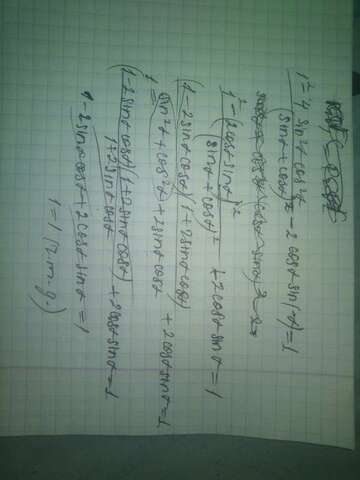 1² - 4 sin²α cos²α / (sinα + cosα)² - 2 cosα sin(-α) = 1
1² - (2cosα sinα)² / (sinα + cosα)² + 2cosα sinα = 1
(1 - 2sinα cosα)(1 + 2sinα cosα) / sin²α + cos²α + 2sinα cosα + 2cosα sinα = 1
1
(1 - 2sinα cosα)(1 + 2sinα cosα) / 1 + 2sinα cosα + 2cosα sinα = 1
1 - 2sinα cosα + 2cosα sinα = 1
1 = 1 (ч.т.д.)